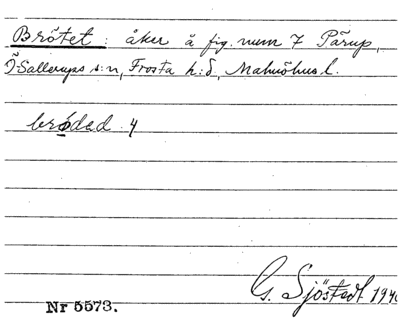 Brötet: åker å fig. num 7 Pärup,
Ö-Sallerups s:n, Frosta h:d, Malmöhus l.
brǿdad. 4
G. Sjöstedt 1940
Nr 5573.